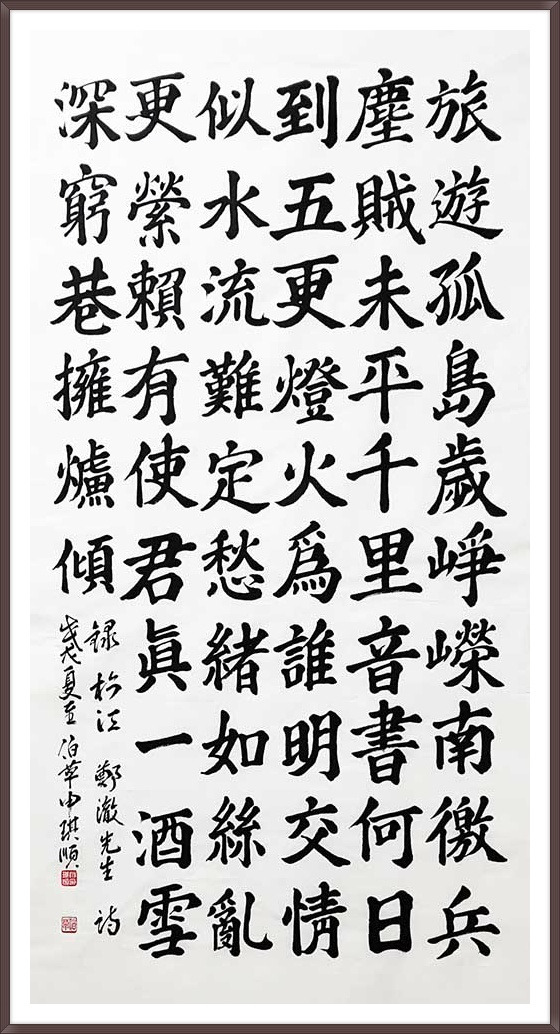 旅遊孤島歲崢嶸南徼兵
塵賊未平千里音書何日
到五更燈火爲誰明交情
似水流難定愁緒如絲亂
更縈賴有使君眞一酒雪
深窮巷擁爐傾
錄松江 鄭澈先生 詩
夏至 申琪順